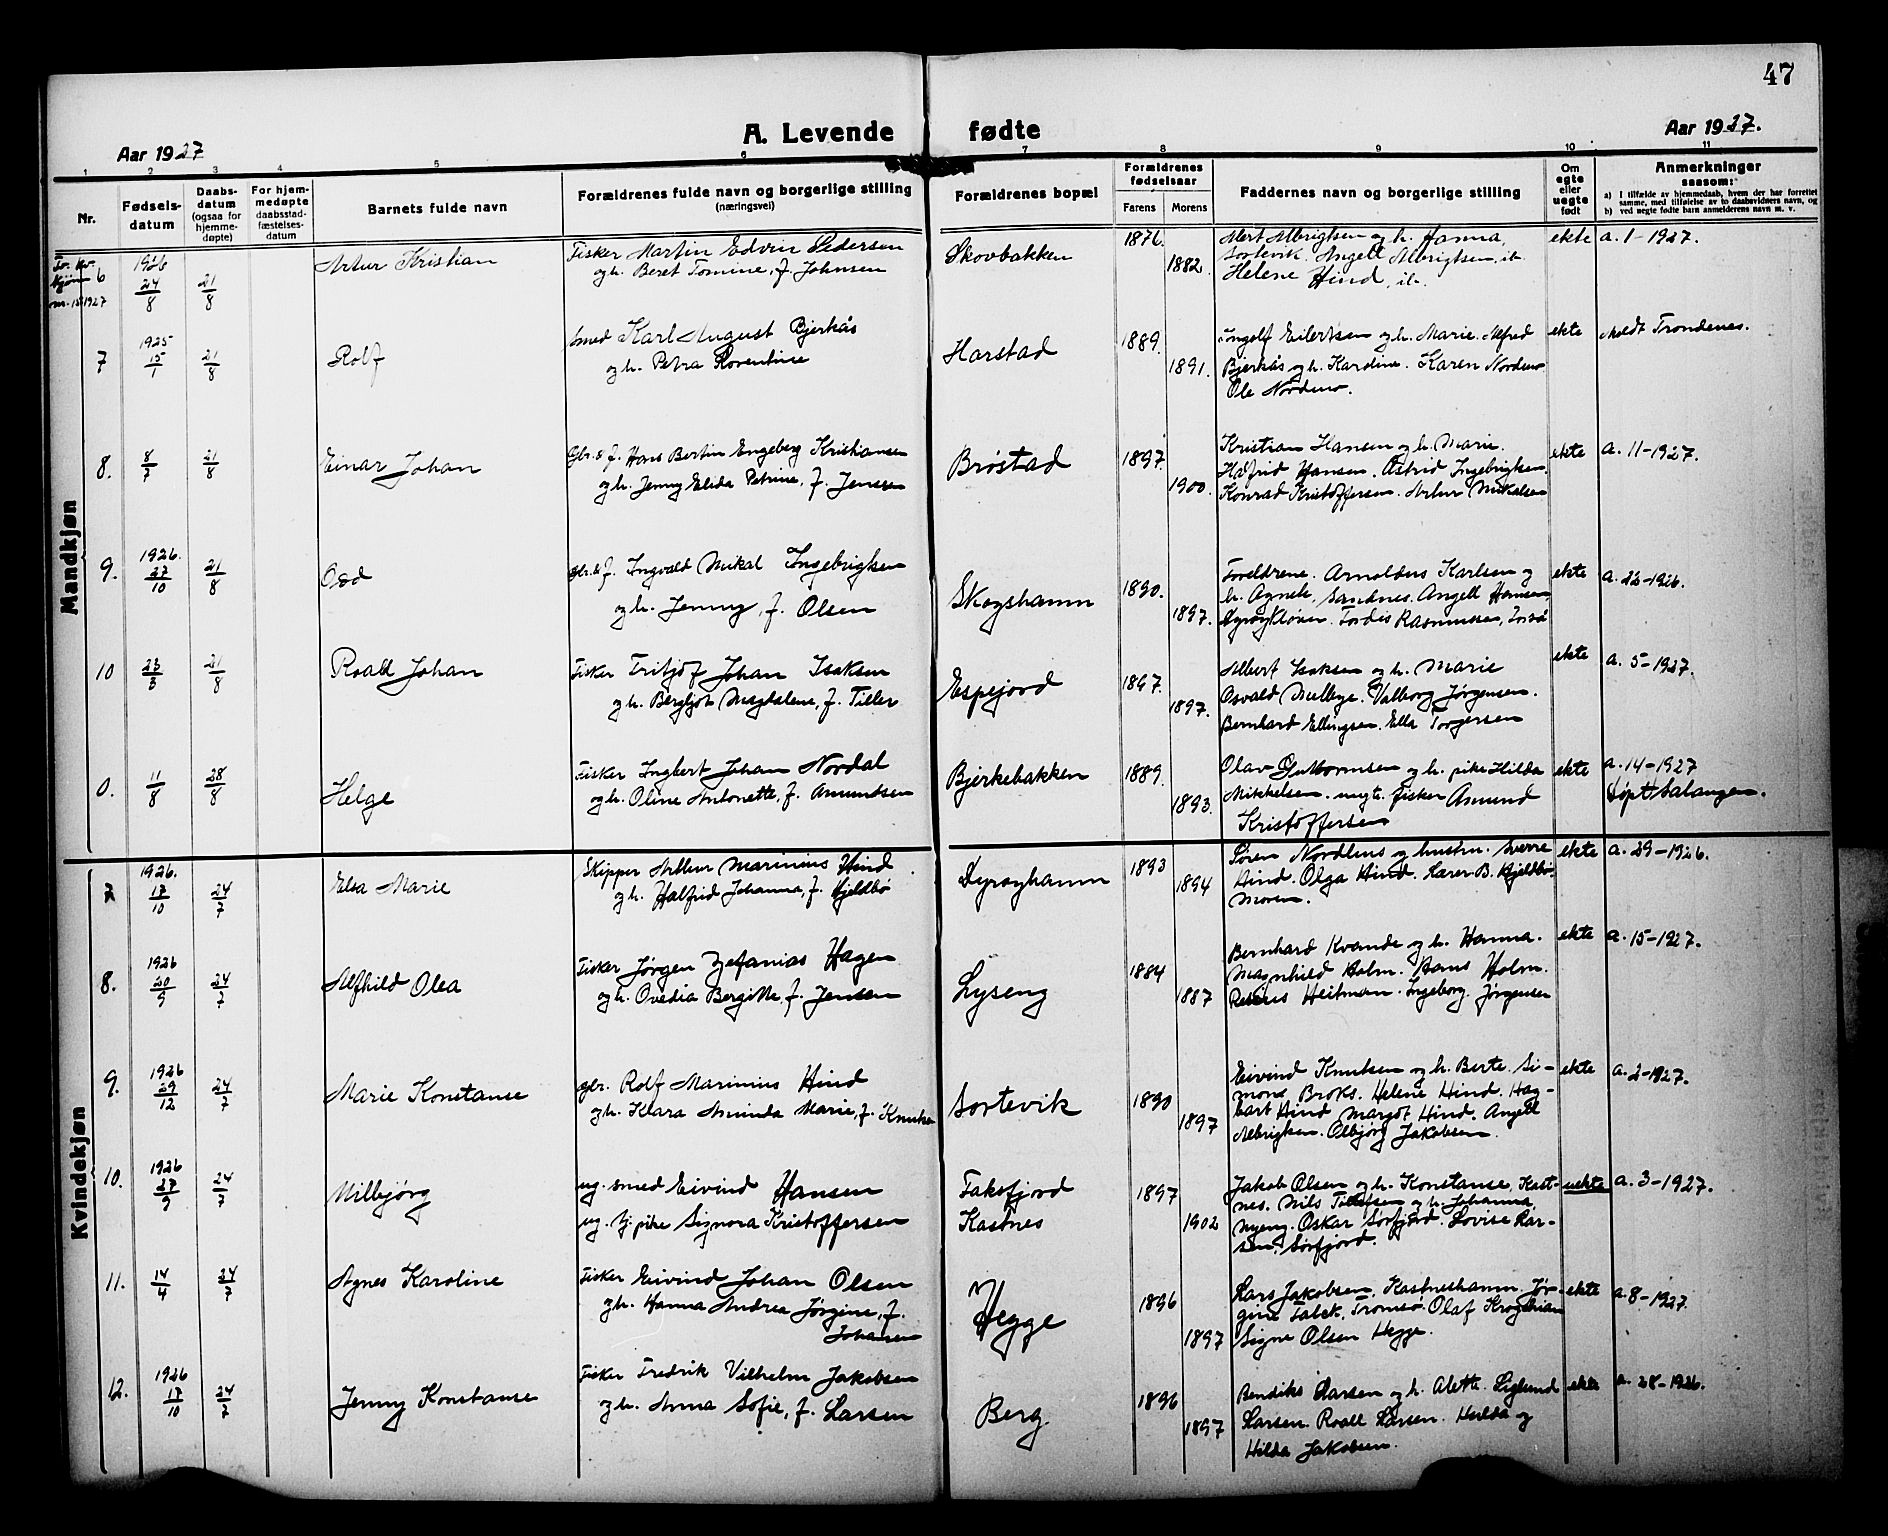 47
A. Levende fødte
Aar 1927
Aar 1927.
1 2 3 4 5 6 7 8 9 10 11
Nr.
Fødsels-
datum
Daabs-
datum
(ogsaa for
hjemme-
døpte)
For hjem-
medøpte
daabsstad-
fæstelses-
datum
Barnets fulde navn
Forældrenes fulde navn og borgerlige stilling
(næringsvei)
Forældrenes bopæl
Forældrenes
fødselsaar
Farens Morens
Faddernes navn og borgerlige stilling
Om
egte
eller
uegte
født
Anmerkninger
saasom:
a) I tilfælde av hjemmedaab, hvem der har forrettet
samme, med tilføielse av to daabsvidners navn, og
b) ved uegte fødte barn anmelderens navn m. v.
Mandkjøn
6 1926 24/8 21/8 Artur Kristian
Fisker Martin Edvin Pedersen
og h. Beret Tomine, f. Johnsen
Skovbakken 1876. 1882.
Albrigtsen og h. Hanna,
Sortevik. Angell Albrigtsen, ib.
Helene Hind, ib.
ekte a. 1-1927.
7 1925 15/1 21/8 Rolf
Smed Karl August Bjerkås
og h. Petra Florentine
Harstad 1889. 1891.
Ingolf Eilertsen og h. Marie. Alfred
Bjerkås og h. Karoline. Karen Nordmo
Ole Nordmo.
ekte meldt Trondenes.
8. 8/7 21/8 Einar Johan
Gbr. & f. Hans Bertin Engeberg Kristiansen
og h. Jenny Elida Petrine, f. Jensen
Brøstad 1897. 1900.
Kristian Hansen og h. Marie.
Halfrid Hansen. Astrid Ingebrigtsen.
Konrad Kristoffersen. Artur Mikalsen
ekte a. 11-1927.
9. 1926. 27/10 21/8
gbr. & f. Ingvald Mikal Ingebrigtsen
og h. Jenny, f. Olsen
Skogshamn 1890. 1897.
Foreldrene. Arnoldus Karlsen og
h. Agnete, Sandnes. Angell Hansen,
Dyrøy Kløven. Tordis Rasmussen,
ekte a. 22-1926.
10 23/3 21/8 Roald Johan
Fisker Fritjof Johan Isaksen
og h. Bergljot Magdalene, f. Tiller
Espejord 1897. 1897.
Albert Isaksen og h. Marie
Osvald Mellbye. Valborg Jørgensen.
Bernhard Ellingsen. Ella Torgersen
ekte a. 5-1927.
0. 11/8 28/8 Helge
Fisker Ingbert Johan Nordal
og h. Oline Antonette, f. Amundsen
Bjerkebakken 1889. 1893.
Olav Guttormsen og h. pike Hilda
Mikkelsen. ungk. fisker Amund
Kristoffersen
ekte a. 14-1927
døpt Salangen.
Kvindekjøn
7 1926. 17/10 24/7 Elsa Marie
Skipper Arthur Marinius Hind
og h. Halfrid Johanna, f. Kjeldbo
Dyrøyhamn 1893 1894
Søren Nordlens og hustru. Sverre
Hind. Olga Hind. Lærer B. Kjeldbo.
Moren.
ekte a. 29-1926.
8. 1926 20/9 24/7 Alfhild Olea
Fisker Jørgen Zefanias Hagen
og h. Ovedia Bergitte, f. Jensen
Lyseng 1884 1887
Bernhard Kvande og h. Hanna.
Magnhild Holm. Hans Holm.
Heitman. Ingeborg Jørgensen
ekte a. 15-1927.
9. 1926 29/12 24/7 Marie Konstanse
gbr. Rolf Marinius Hind
og h. Klara Amunda Marie, f. Knutsen
Sortevik 1890 1897
Eivind Knutsen og h. Berte. Si-
mon Broks. Helene Hind. Hag-
bart Hind. Margot Hind. Angell
Albrigtsen. Olbjørg Jakobsen.
ekte a. 2-1927.
10. 1926 27/9 24/7 Milbjørg
ug. smed Eivind Hansen
ug. tj. pike Signora Kristoffersen
Faksfjord
Kastnes
1897 1902
Jakob Olsen og h. Konstanse, Kast-
nes. Nils Tollefsen og h. Johanna,
Nyeng. Oskar Sørfjord. Lovise Lar-
sen, Sørfjord.
uekte a. 3-1927.
11. 14/4 24/7 Agnes Karoline
Fisker Eivind Johan Olsen
og h. Hanna Andrea Jørgine, f.
Johansen
Hegge 1896 1897
Lars Jakobsen, Kastneshamn. Jør-
gine Falck, Tromsø. Olaf
Signe Olsen Hegge.
ekte a. 8-1927.
12. 1926 17/10 24/7 Jenny Konstanse
Fisker Fredrik Vilhelm Jakobsen
og h. Anna Sofie, f. Larsen
Berg 1896 1897
Bendiks Larsen og h. Alette. Siglund
Larsen. Roald Larsen. Hulda og
Hilda Jakobsen.
ekte a. 28-1926.